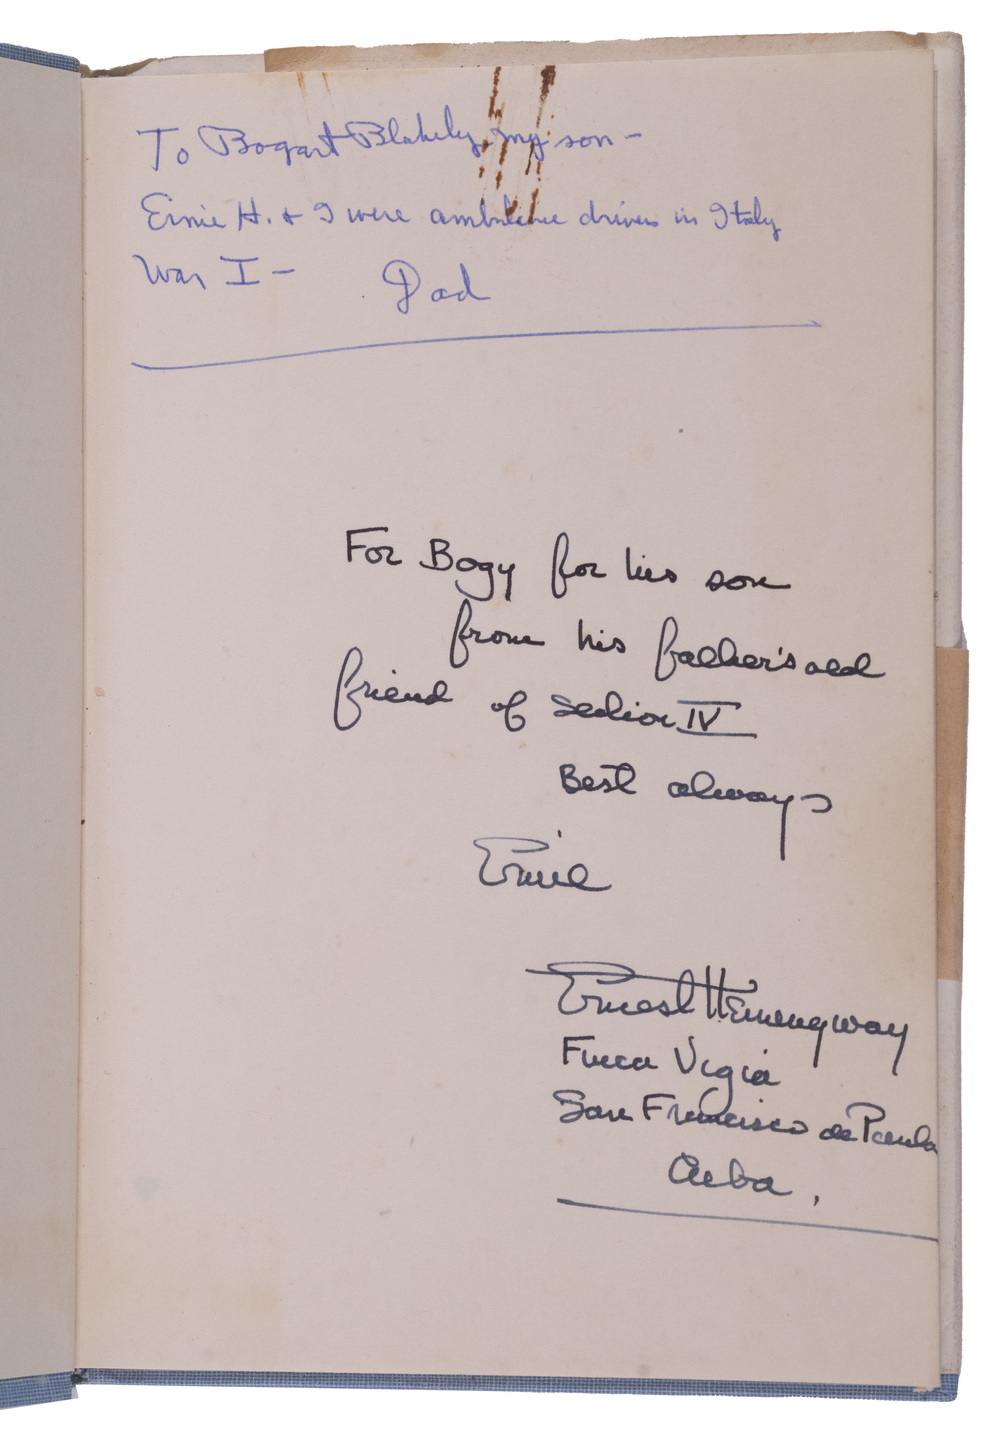 To Bogart Blakely, my son –
Ernie H. + I were ambulance drivers in Italy
War I –   Dad
For Bogy for his son
from his father's old
friend of Section IV
Best always
Ernie
Ernest Hemingway
Finca Vigia
San Francisco de Paula
Cuba,